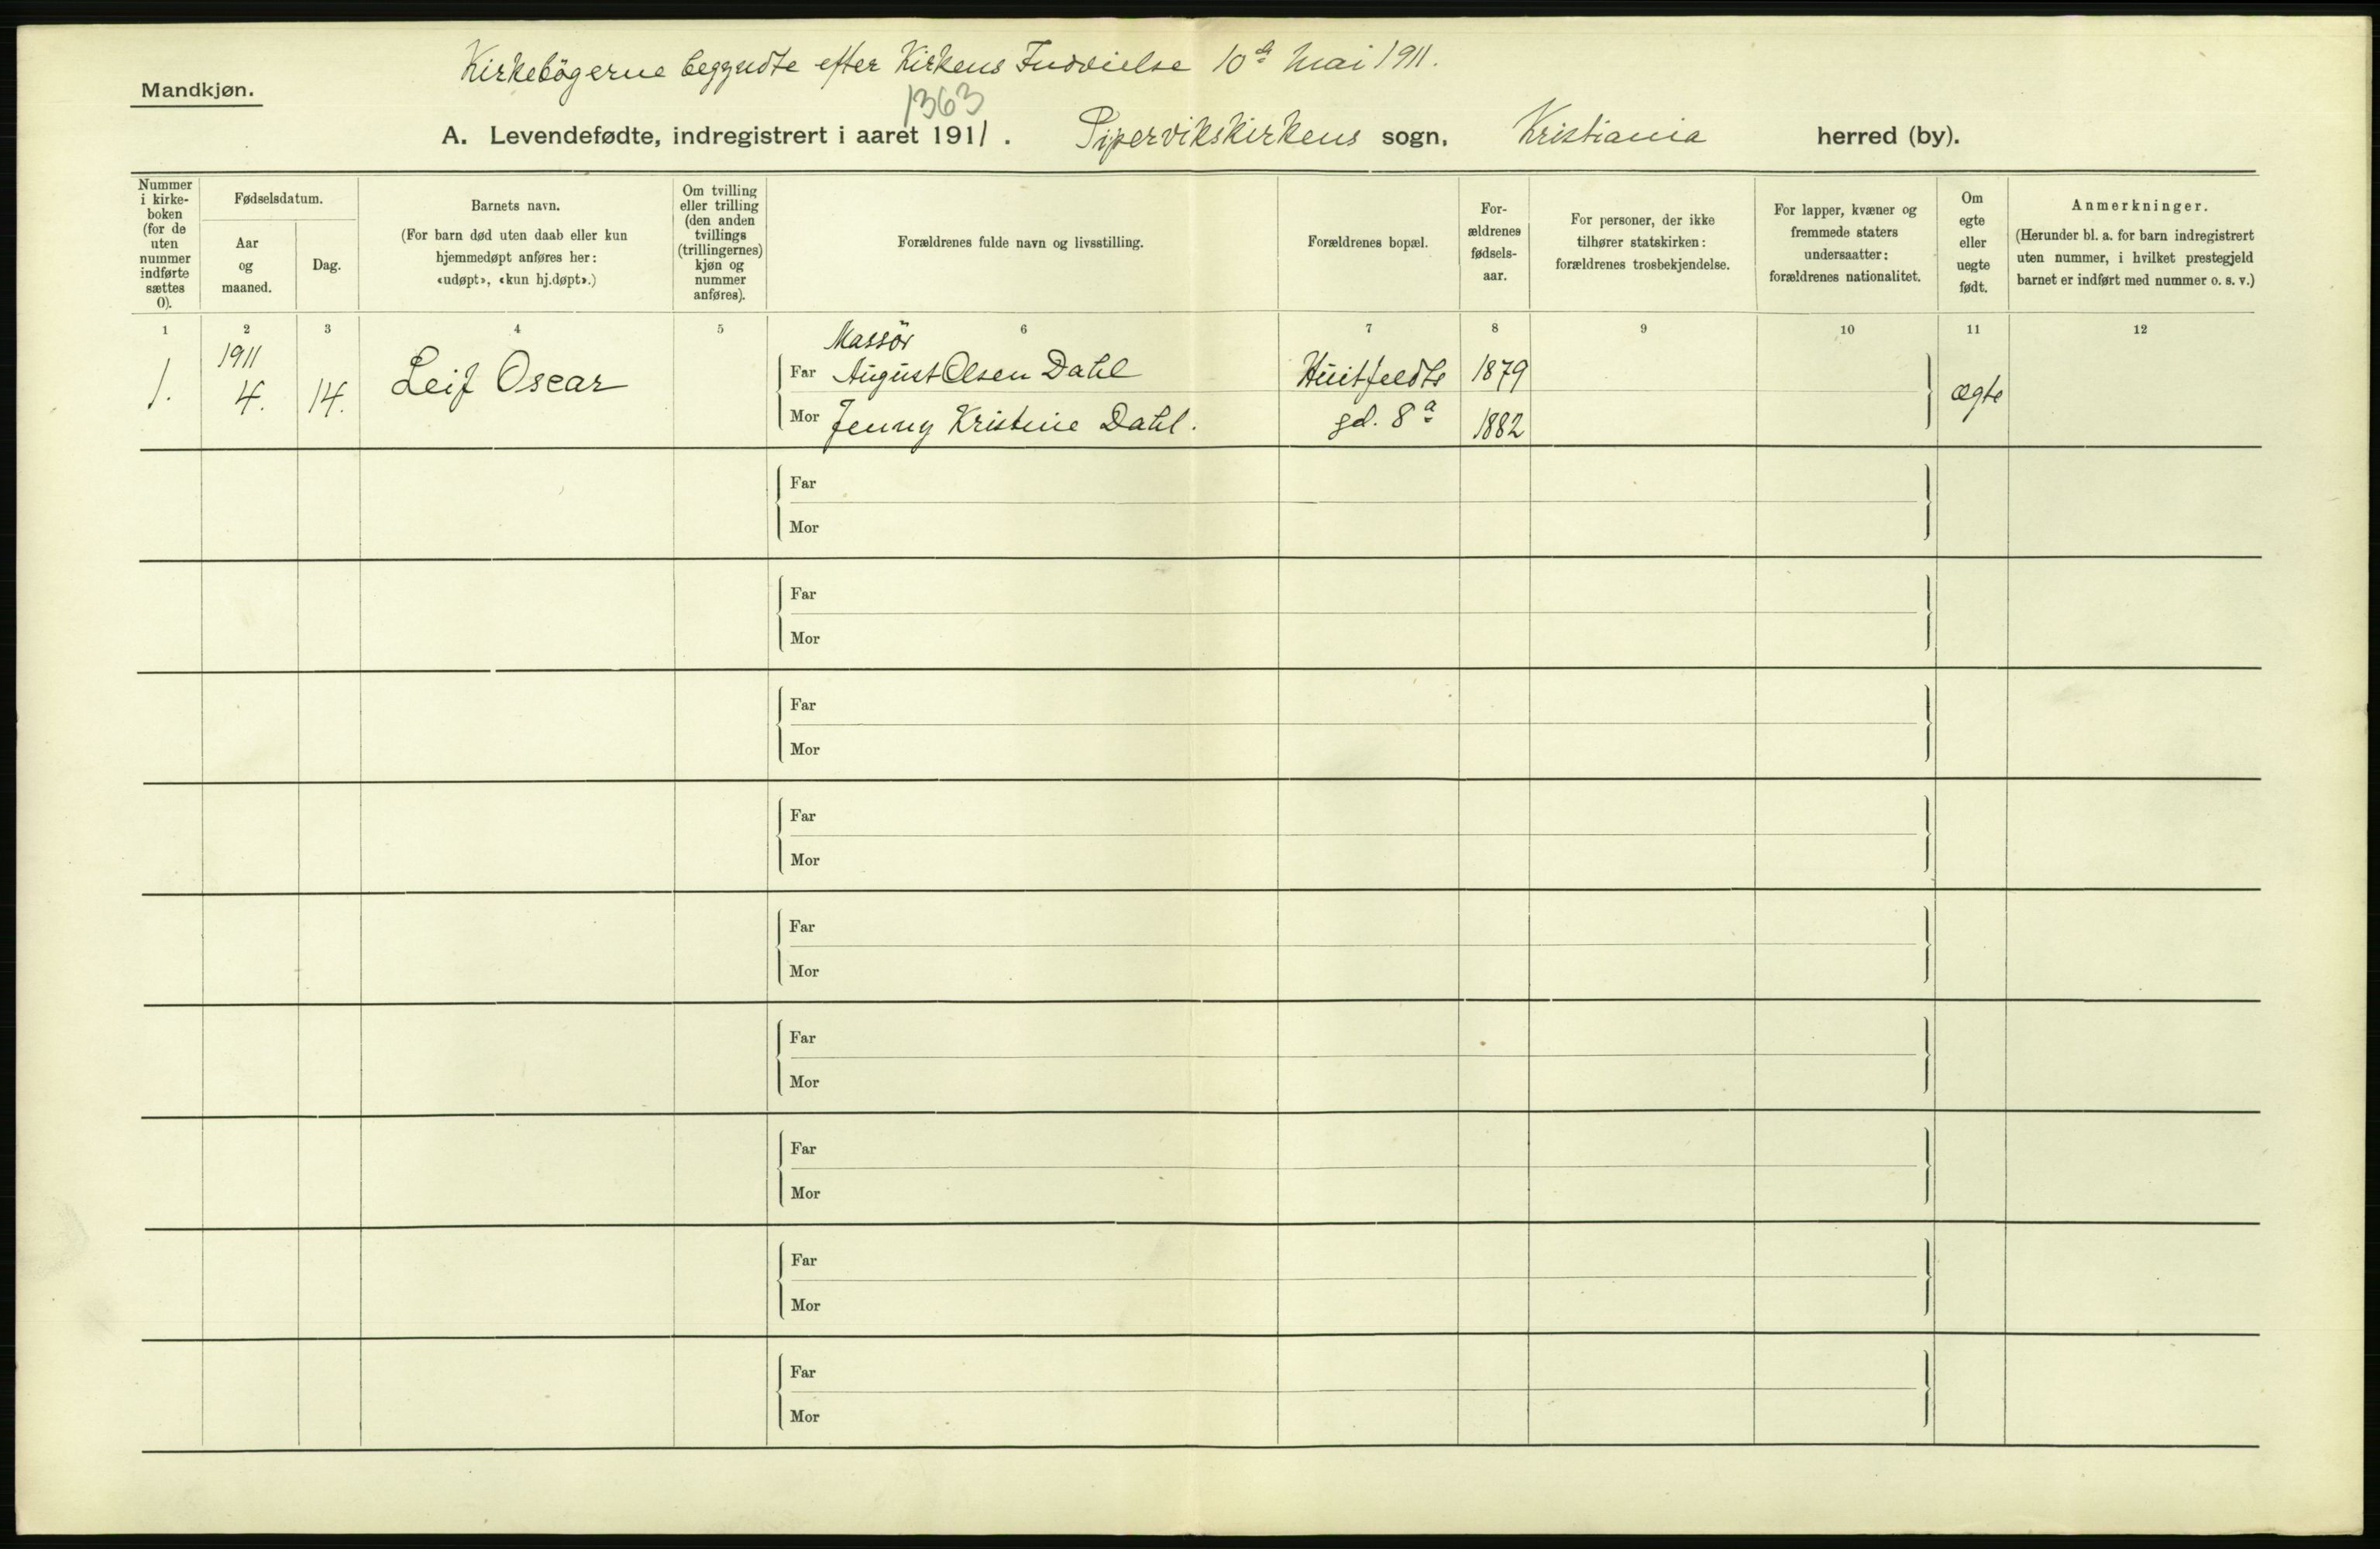 Kirkebögerne begyndte efter Kirkens Indvielse 10de Mai 1911.
Mandkjøn.
1363
A. Levendefødte, indregistrert i aaret 1911. Pipervikskirkens sogn, Kristiania herred (by).
Nummer i kirke-boken (for de uten nummer indførte sættes 0).
Fødselsdatum.
Aar og maaned.
Dag.
Barnets navn.
(For barn død uten daab eller kun hjemmedøpt anføres her: «udøpt», «kun hj.døpt».)
Om tvilling eller trilling (den anden tvillings (trillingernes) kjøn og nummer anføres).
Forældrenes fulde navn og livsstilling.
Forældrenes bopæl.
For-ældrenes fødsels-aar.
For personer, der ikke tilhører statskirken: forældrenes trosbekjendelse.
For lapper, kvæner og fremmede staters undersaatter: forældrenes nationalitet.
Om egte eller uegte født.
Anmerkninger.
(Herunder bl. a. for barn indregistrert uten nummer, i hvilket prestegjeld barnet er indført med nummer o. s. v.)
1 2 3 4 5 6 7 8 9 10 11 12
1. 1911 4. 14. Leif Oscar
Massör
Far August Olsen Dahl Huitfeldts 1879
Mor Jenny Kristine Dahl. gd. 8a 1882
ægte
Far
Mor
Far
Mor
Far
Mor
Far
Mor
Far
Mor
Far
Mor
Far
Mor
Far
Mor
Far
Mor